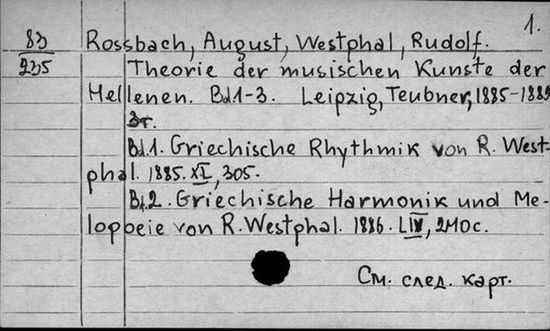 1.
83 Rossbach, August, Westphal, Rudolf.
235 Theorie der musischen Kunste der
Hellenen. Bd.1-3. Leipzig, Teubner, 1885-1889
3т.
Bd.1. Griechische Rhythmik von R. West-
phal. 1885. XI, 305.
Bd.2. Griechische Harmonik und Me-
lopoeie von R. Westphal. 1886. LIV, 240с.
См. след. карт.